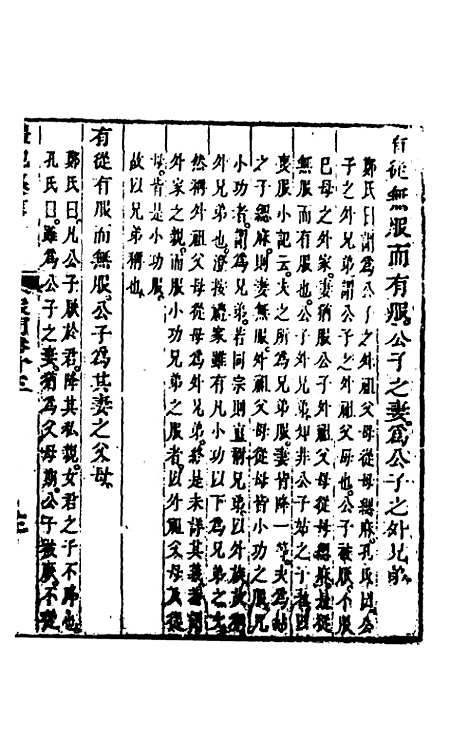 有從無服而有服公子之妻爲公子之外兄弟
鄭氏曰謂爲公子之外祖父母從母緦麻孔氏曰公
子之外兄弟謂公子外祖父母也公子被厭不服
已母之外家妻猶服公子外祖父母從母緦麻是從
無服而有服也公子外兄弟知非公子姑之子者以
喪服小記云夫之所爲兄弟服妻皆降一等夫爲姑
之子緦麻則妻無服外祖父母從母皆小功之服凡
小功者謂爲兄弟若同宗則直稱兄弟以外族故稱
外兄弟也澄按禮家雖有凡小功以下爲兄弟之文
然稱外祖父母從母爲外兄弟終是未詳其義蓋謂
外家之親而服小功兄弟之服者以外祖父母及從
母皆是小功服
故以兄弟稱也
有從有服而無服公子爲其妻之父母
鄭氏曰凡公子厭於君降其私親女君之子不降也
孔氏曰雖爲公子之妻猶爲父母期公子被厭不從